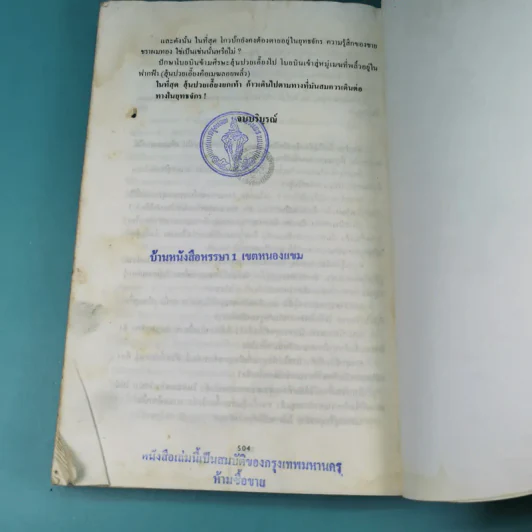 และดังนั้น ในที่สุด โกวบ้อยังคงต้องตายอยู่ในยุทธจักร ความรู้สึกของชาย
ชราผมทอง ใช่เป็นเช่นนั้นหรือไม่ ?
ปักษาโบยบินข้ามศีรษะสุ้นปวยเอี้ยงไป โบยบินเข้าสู่หมู่เมฆที่พลิ้วอยู่ใน
ฟากฟ้า (สุ้นปวยเอี้ยงคือเมฆลอยพลิ้ว)
ในที่สุด สุ้นปวยเอี้ยงยกเท้า ก้าวเดินไปตามทางที่มันสมควรเดินต่อ
ทางในยุทธจักร !
จบบริบูรณ์
บ้านหนังสือหรรษา 1 เขตหนองแขม
504
หนังสือเล่มนี้เป็นสมบัติของกรุงเทพมหานคร
ห้ามซื้อขาย